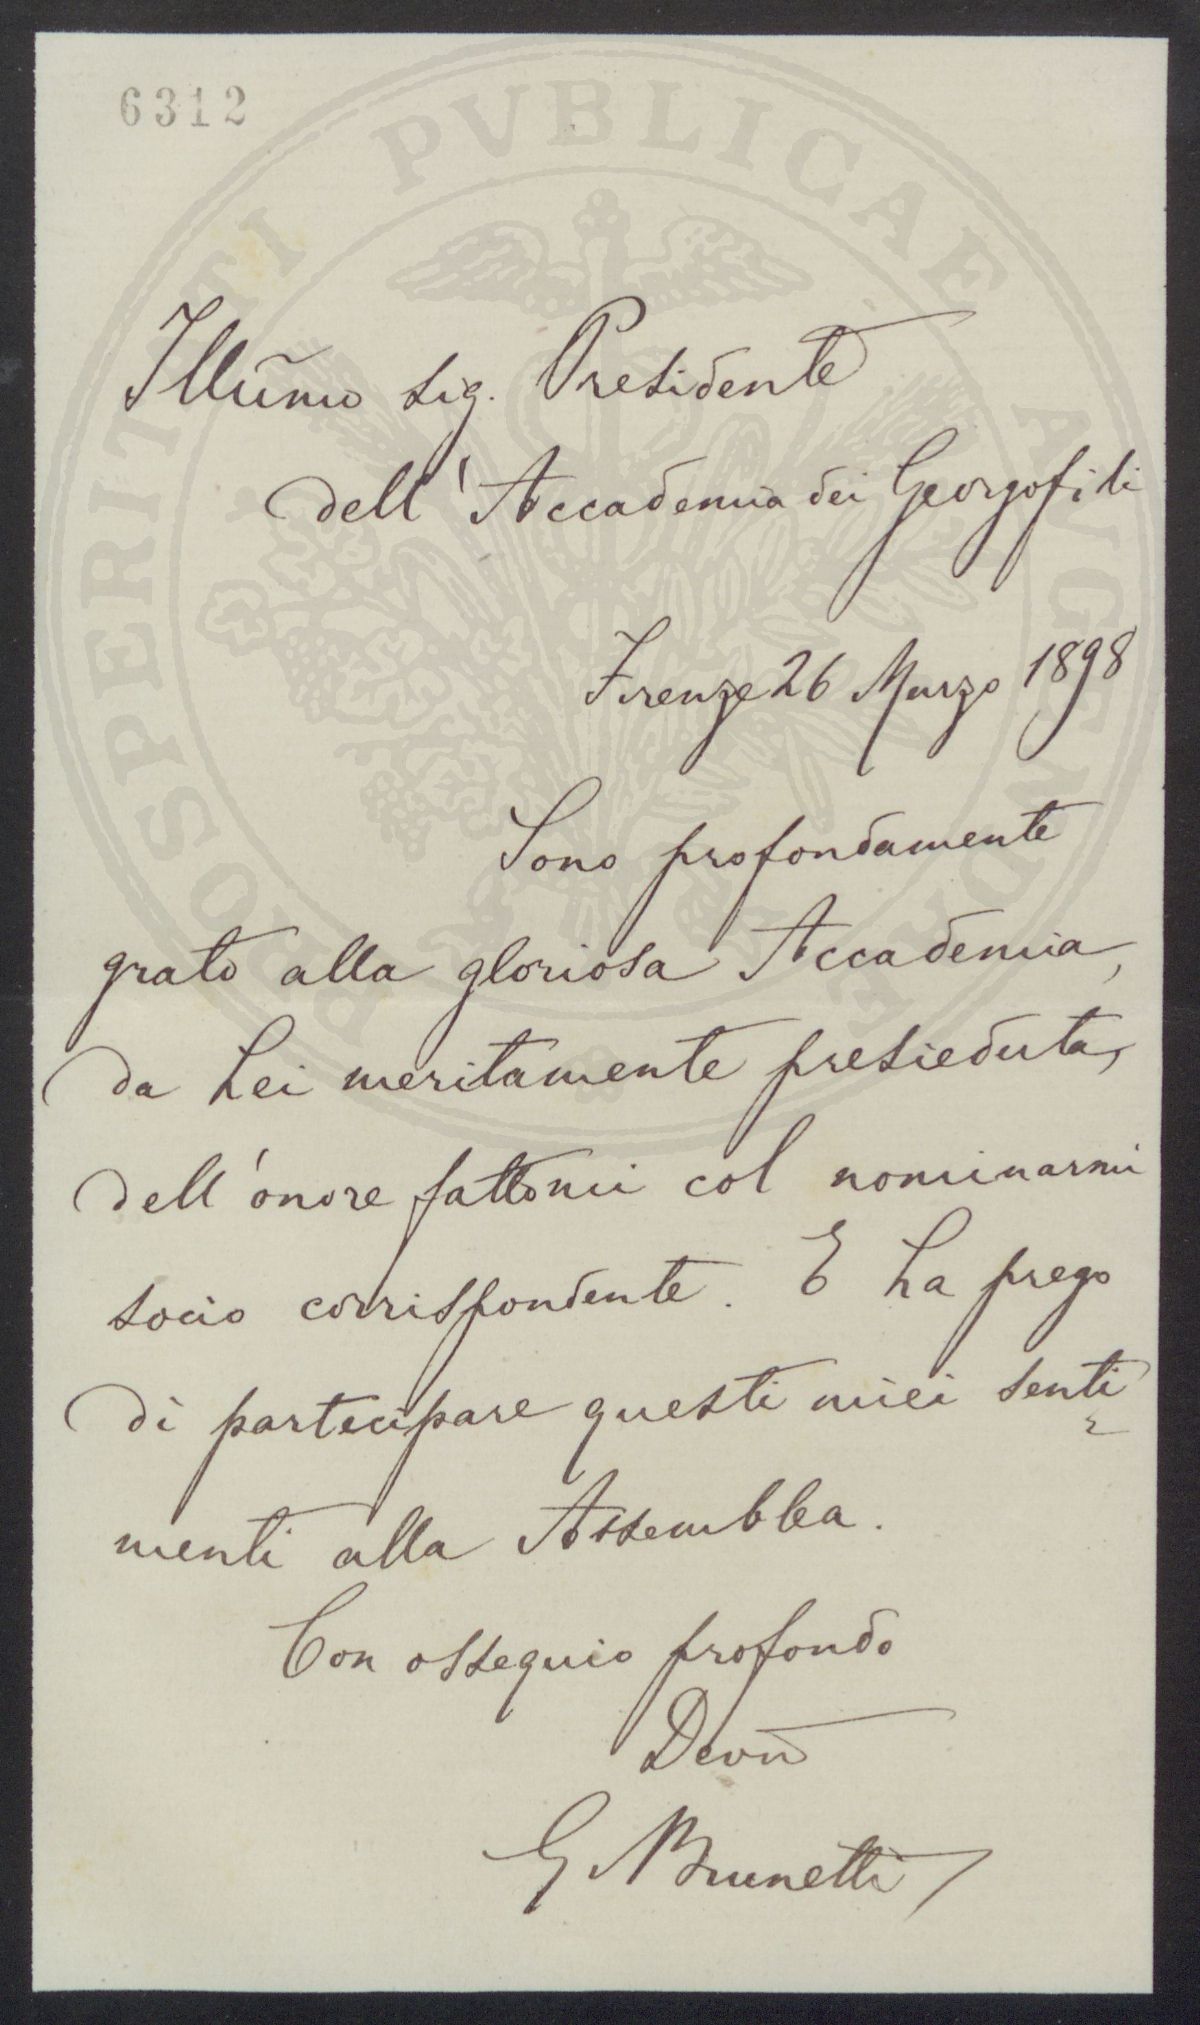 6312
PROSPERITATI PVBLICAE AVGENDAE
Illumo sig. Presidente
dell'Accademia dei Georgofili
Firenze 26 Marzo 1898
Sono profondamente
grato alla gloriosa Accademia,
da Lei meritamente presieduta,
dell'onore fattomi col nominarmi
socio corrispondente. E La prego
di partecipare questi miei senti
menti alla Assemblea.
Con ossequio profondo
Devm̄o
G. Brunetti